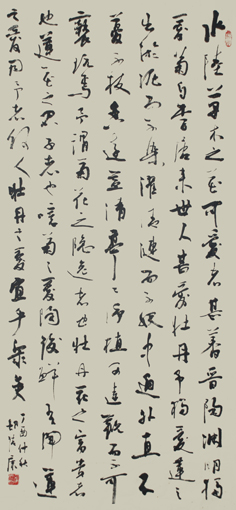 水陸草木之花可愛者甚蕃晉陶淵明獨
愛菊自李唐來世人甚愛牡丹予獨愛蓮之
出淤泥而不染濯清漣而不妖中通外直不
蔓不枝香遠益清亭亭淨植可遠觀而不可
褻玩焉予謂菊花之隱逸者也牡丹花之富貴者
也蓮花之君子者也噫菊之愛陶後鮮有聞蓮
之愛同予者何人牡丹之愛宜乎衆矣
丁酉仲秋